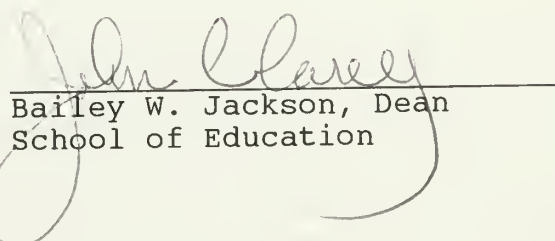 John Carey
Bailey W. Jackson, Dean
School of Education